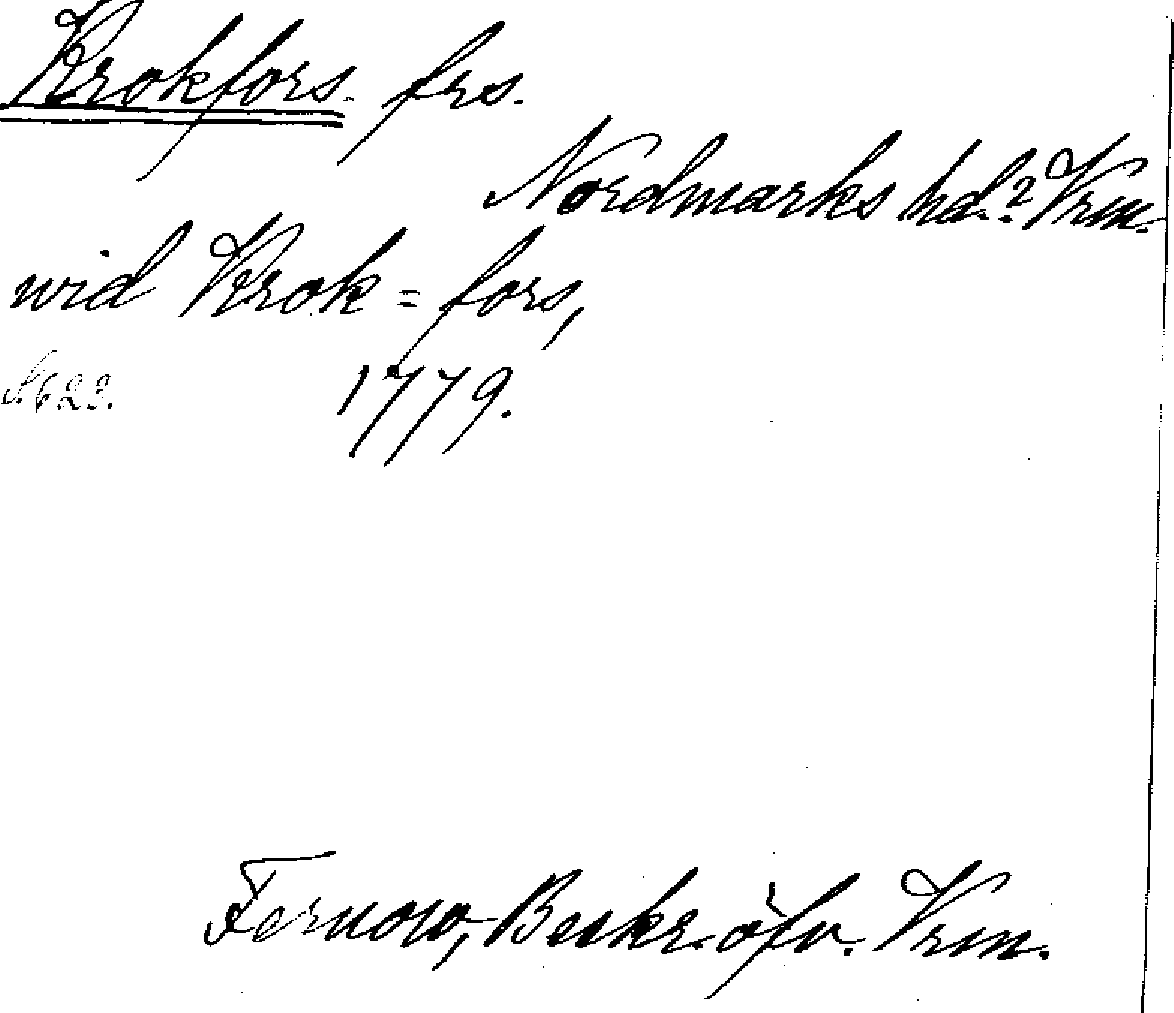 Krokfors. frs.
Nordmarks hd.? Vrm.
wid Krok=fors,
S. 623. 1779.
Fernow, Beskr. öfv. Vrm.